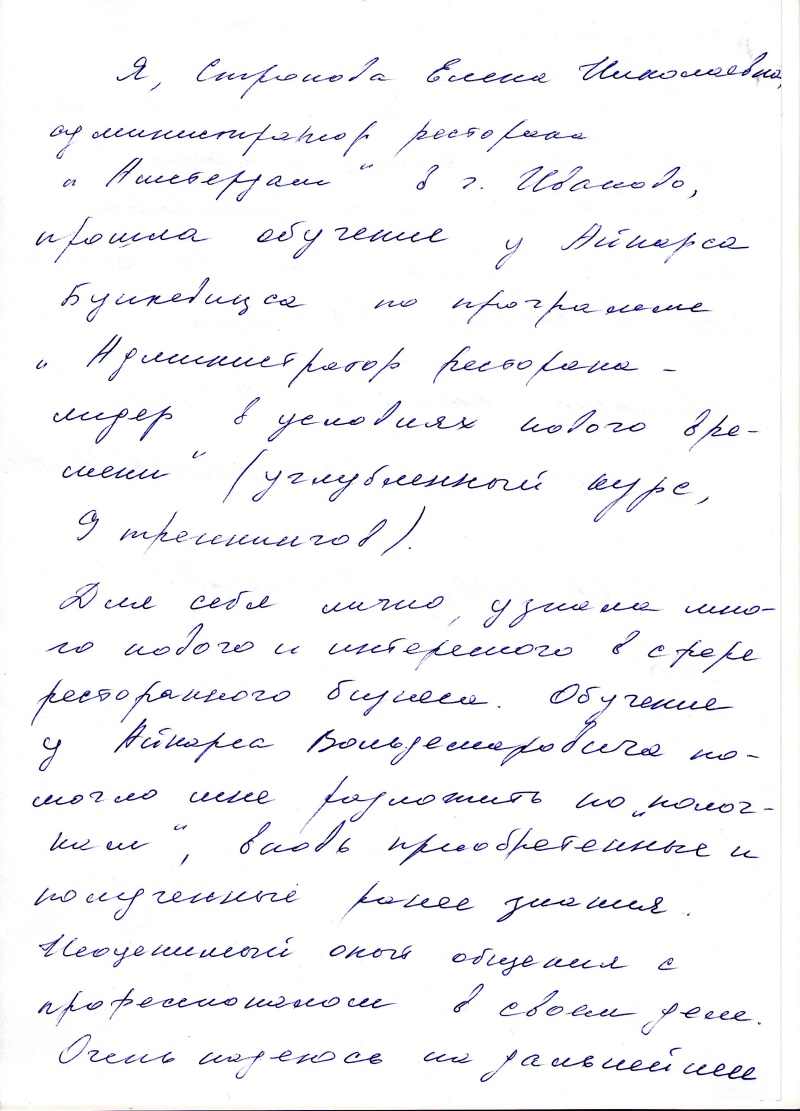 Я, Стронова Елена Николаевна,
администратор ресторана
„Амстердам“ в г. Иваново,
прошла обучение у Айнарса
Бункевицса по программе
„Администратор ресторана -
лидер в условиях нового вре-
мени“ (углубленный курс,
9 треннингов).
Для себя лично, узнала мно-
го нового и интересного в сфере
ресторанного бизнеса. Обучение
у Айнарса Вольдемаровича по-
могло мне разложить по „полоч-
кам“, вновь приобретенные и
полученные ранее знания.
Неоценимый опыт общения с
профессионалом в своем деле.
Очень надеюсь на дальнейшее